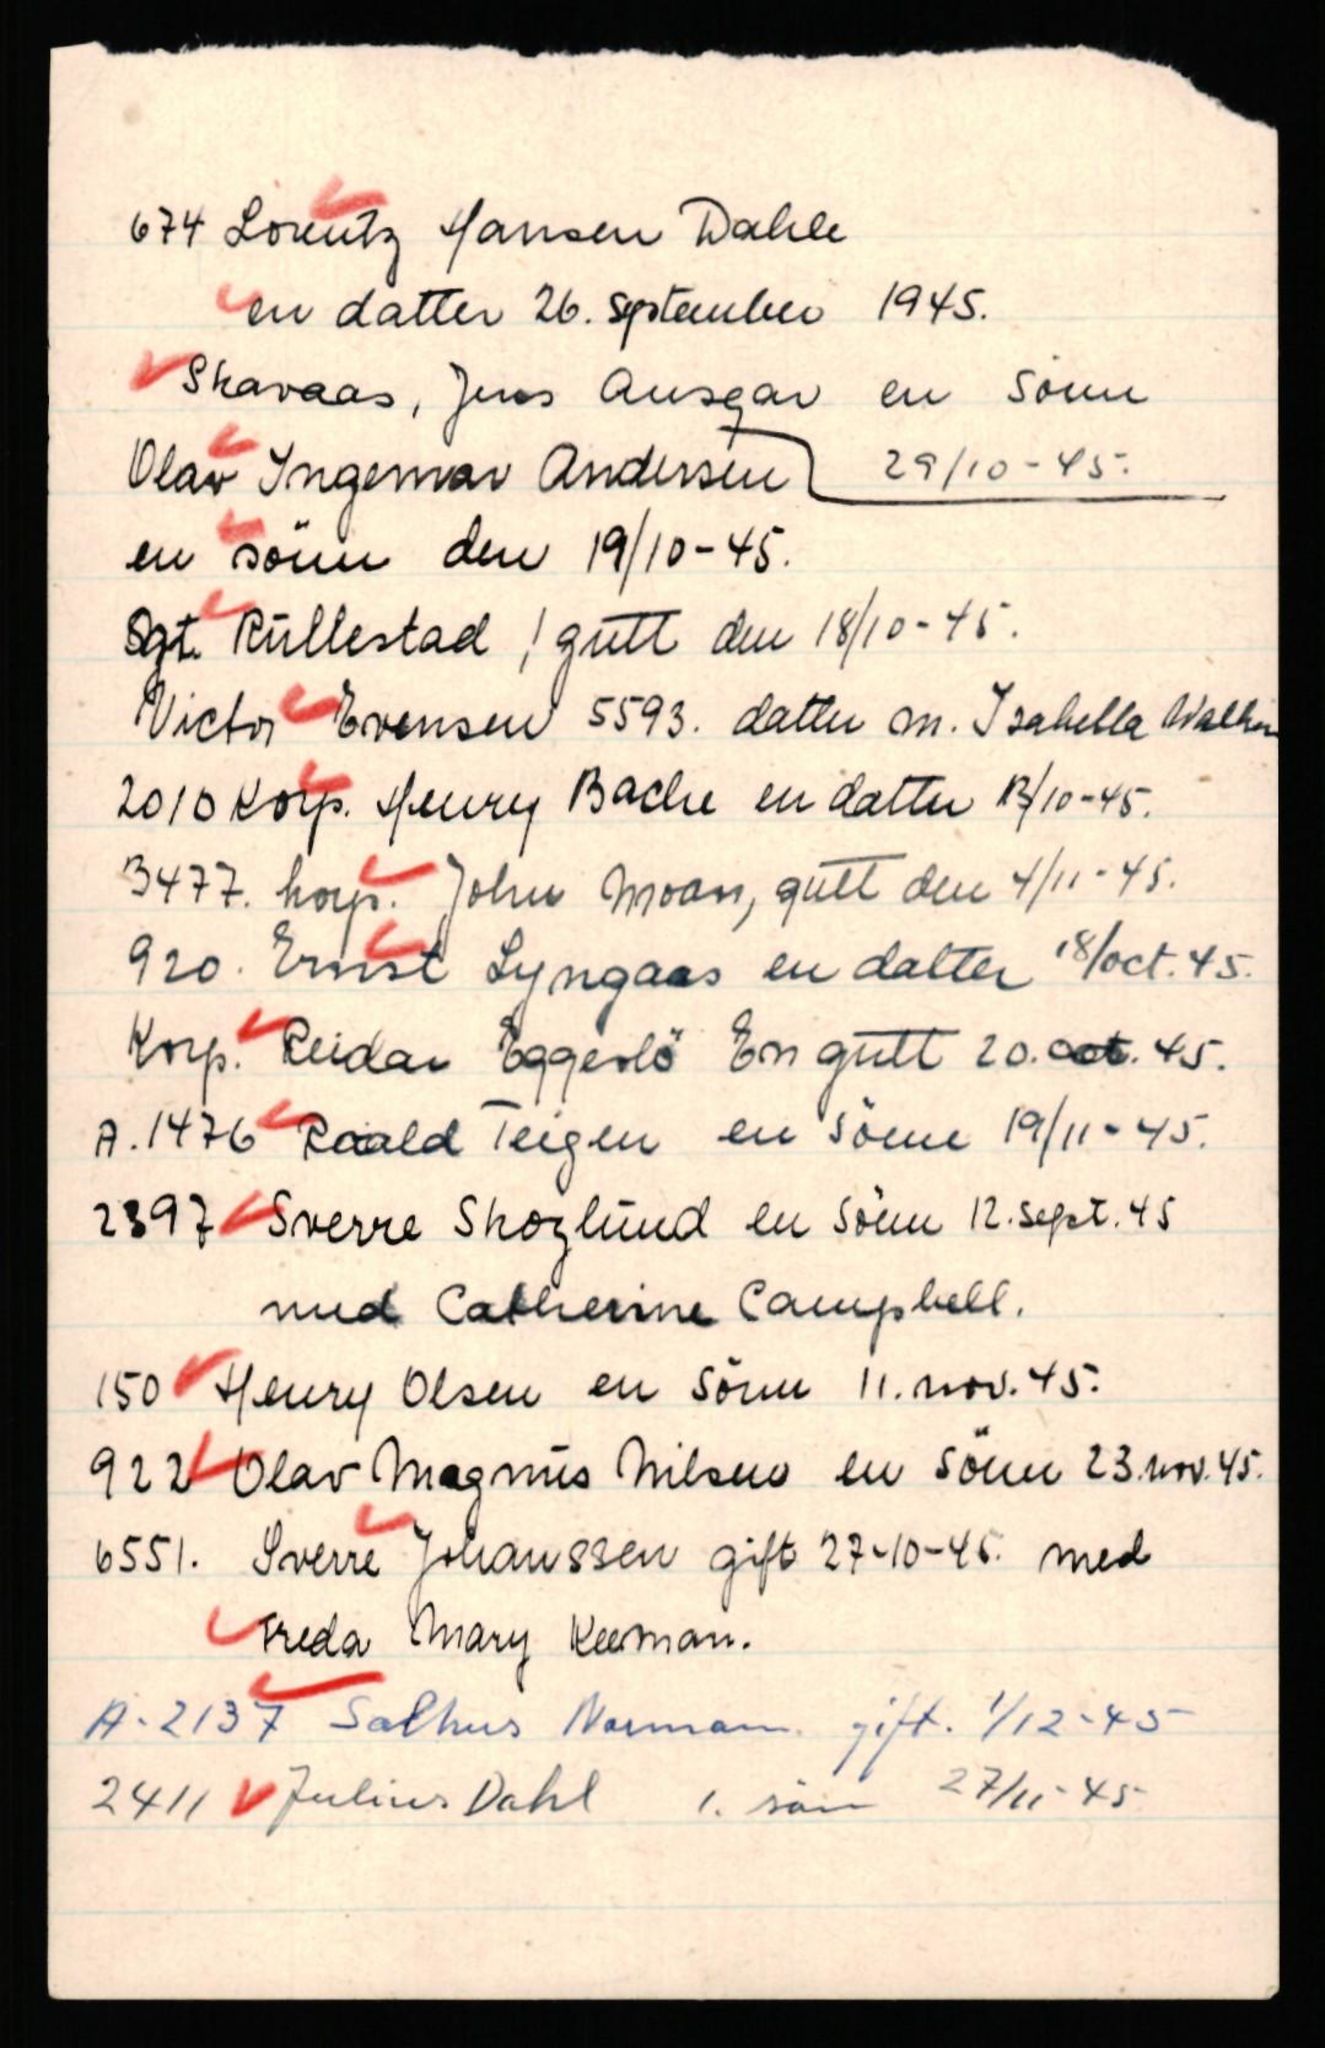 674 Lorentz Hansen Dahle
en datter 26. september 1945.
Skavaas, Jens Ansgar en sönn
29/10-45.
Olav Ingemar Andersen
en sönn den 19/10-45.
Sgt. Rullestad 1 gutt den 18/10-45.
Victor Evensen 5593. datter m. Isabella
2010 Korp. Henry Bache en datter 13/10-45.
3477. korp. John Moan, gutt den 4/11-45.
920. Ernst Lyngaas en datter 18/oct. 45.
Korp. Reidar En gutt 20. oct. 45.
A. 1476 Roald Teigen en sönn 19/11-45.
2397 Sverre Skoglund en sönn 12. sept. 45
med Catherine Campbell.
150 Henry Olsen en sönn 11. nov. 45.
922 Olav Magnus Nilsen en sönn 23. nov. 45.
6551. Sverre Johanssen gift 27-10-45. med
Freda Mary Keeman.
A-2137 Salhus Norman gift. 1/12-45
2411 Julius Dahl 1. sön 27/11-45